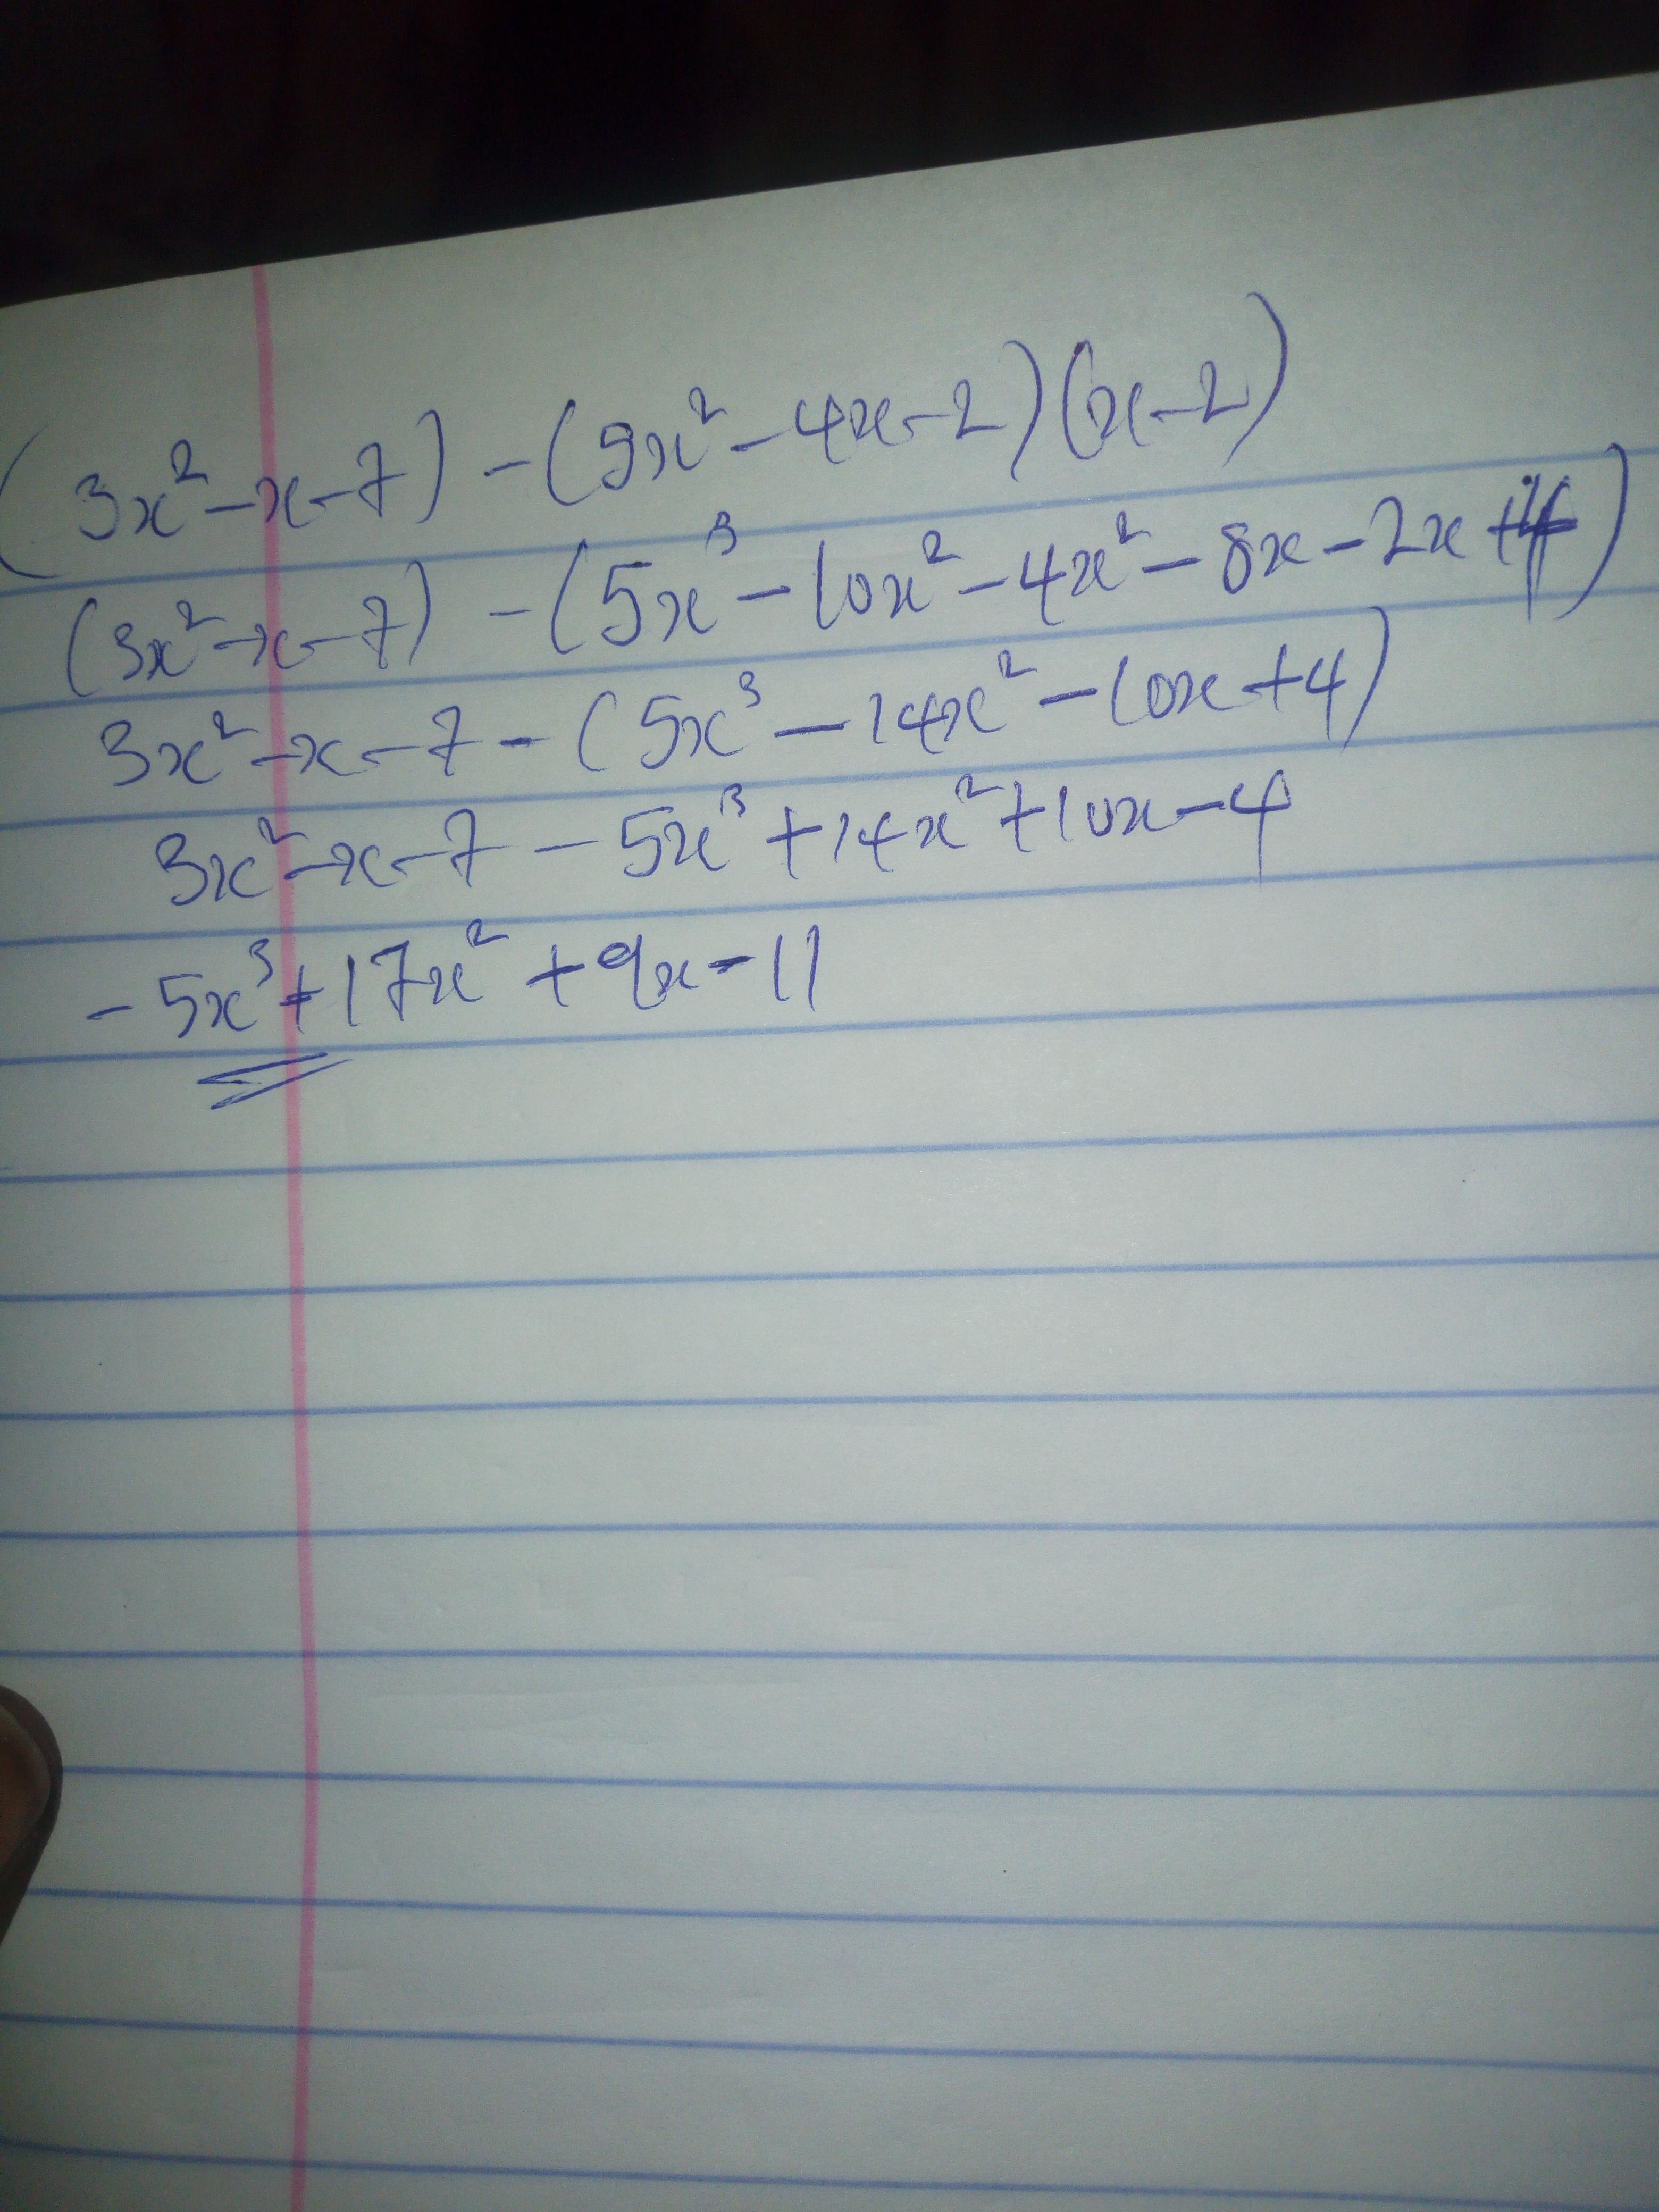 (3x² - x - 7) - (5x² - 4x - 2)(x - 2)
(3x² - x - 7) - (5x³ - 10x² - 4x² - 8x - 2x + 4)
3x² - x - 7 - (5x³ - 14x² - 10x + 4)
3x² - x - 7 - 5x³ + 14x² + 10x - 4
- 5x³ + 17x² + 9x - 11